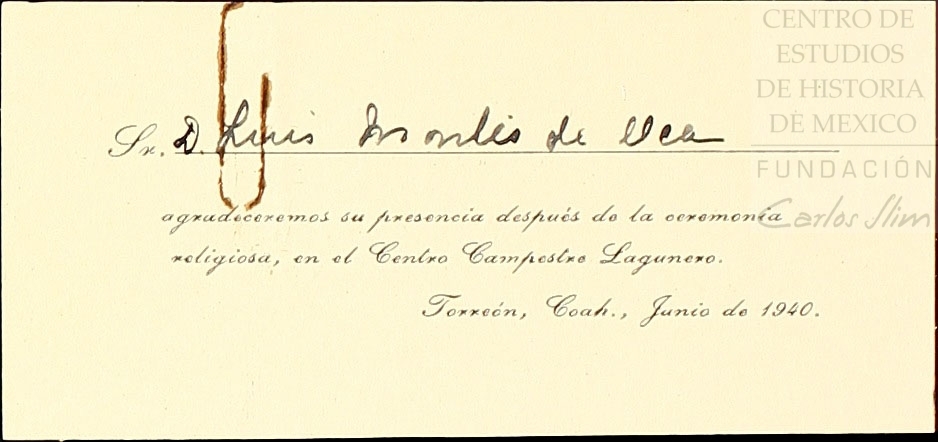 CENTRO DE
ESTUDIOS
DE HISTORIA
DE MEXICO
FUNDACIÓN
Carlos Slim
Sr. D. Luis Montes de Oca
agradeceremos su presencia después de la ceremonia
religiosa, en el Centro Campestre Lagunero.
Torreón, Coah., Junio de 1940.